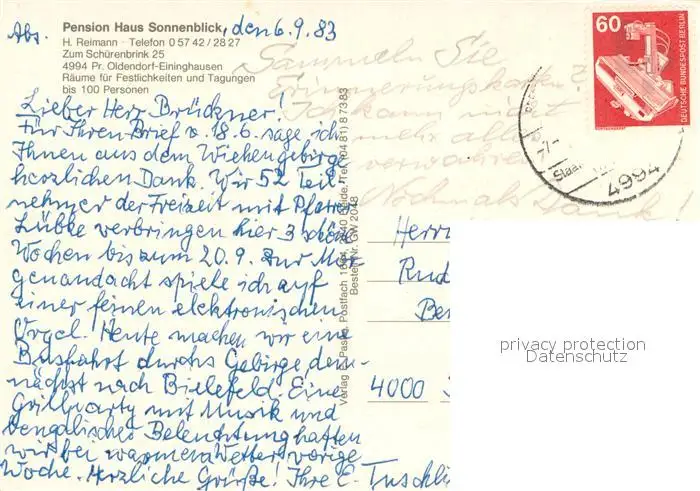 Abs. Pension Haus Sonnenblick, den 6.9.83
H. Reimann · Telefon 0 57 42 / 28 27
Zum Schürenbrink 25
4994 Pr. Oldendorf-Eininghausen
Räume für Festlichkeiten und Tagungen
bis 100 Personen
Lieber Herr Brückner!
Für Ihren Brief v. 18.6. sage ich
Ihnen aus dem Wiehengebirge
herzlichen Dank. Wir 52 Teil
nehmer der Freizeit mit Pfarrer
Lübke verbringen hier 3 schöne
Wochen bis zum 20.9. Zur Mor
genandacht spiele ich auf
einer feinen elektronischen
Orgel. Heute machen wir eine
Busfahrt durchs Gebirge, dem-
nächst nach Bielefeld. Eine
Grillparty mit Musik und
bengalischer Beleuchtung hatten
wir bei warmem Wetter vorige
Woche. Herzliche Grüße! Ihre E. Tuschli
Sammeln Sie
Erinnerungskarten?
Ich kann nicht
mehr alle
verwahren
Nochmals Dank!
Bestell-Nr. GW 2048
60
DEUTSCHE BUNDESPOST BERLIN
4994
Herrn
Rud
Be
4000
privacy protection
Datenschutz